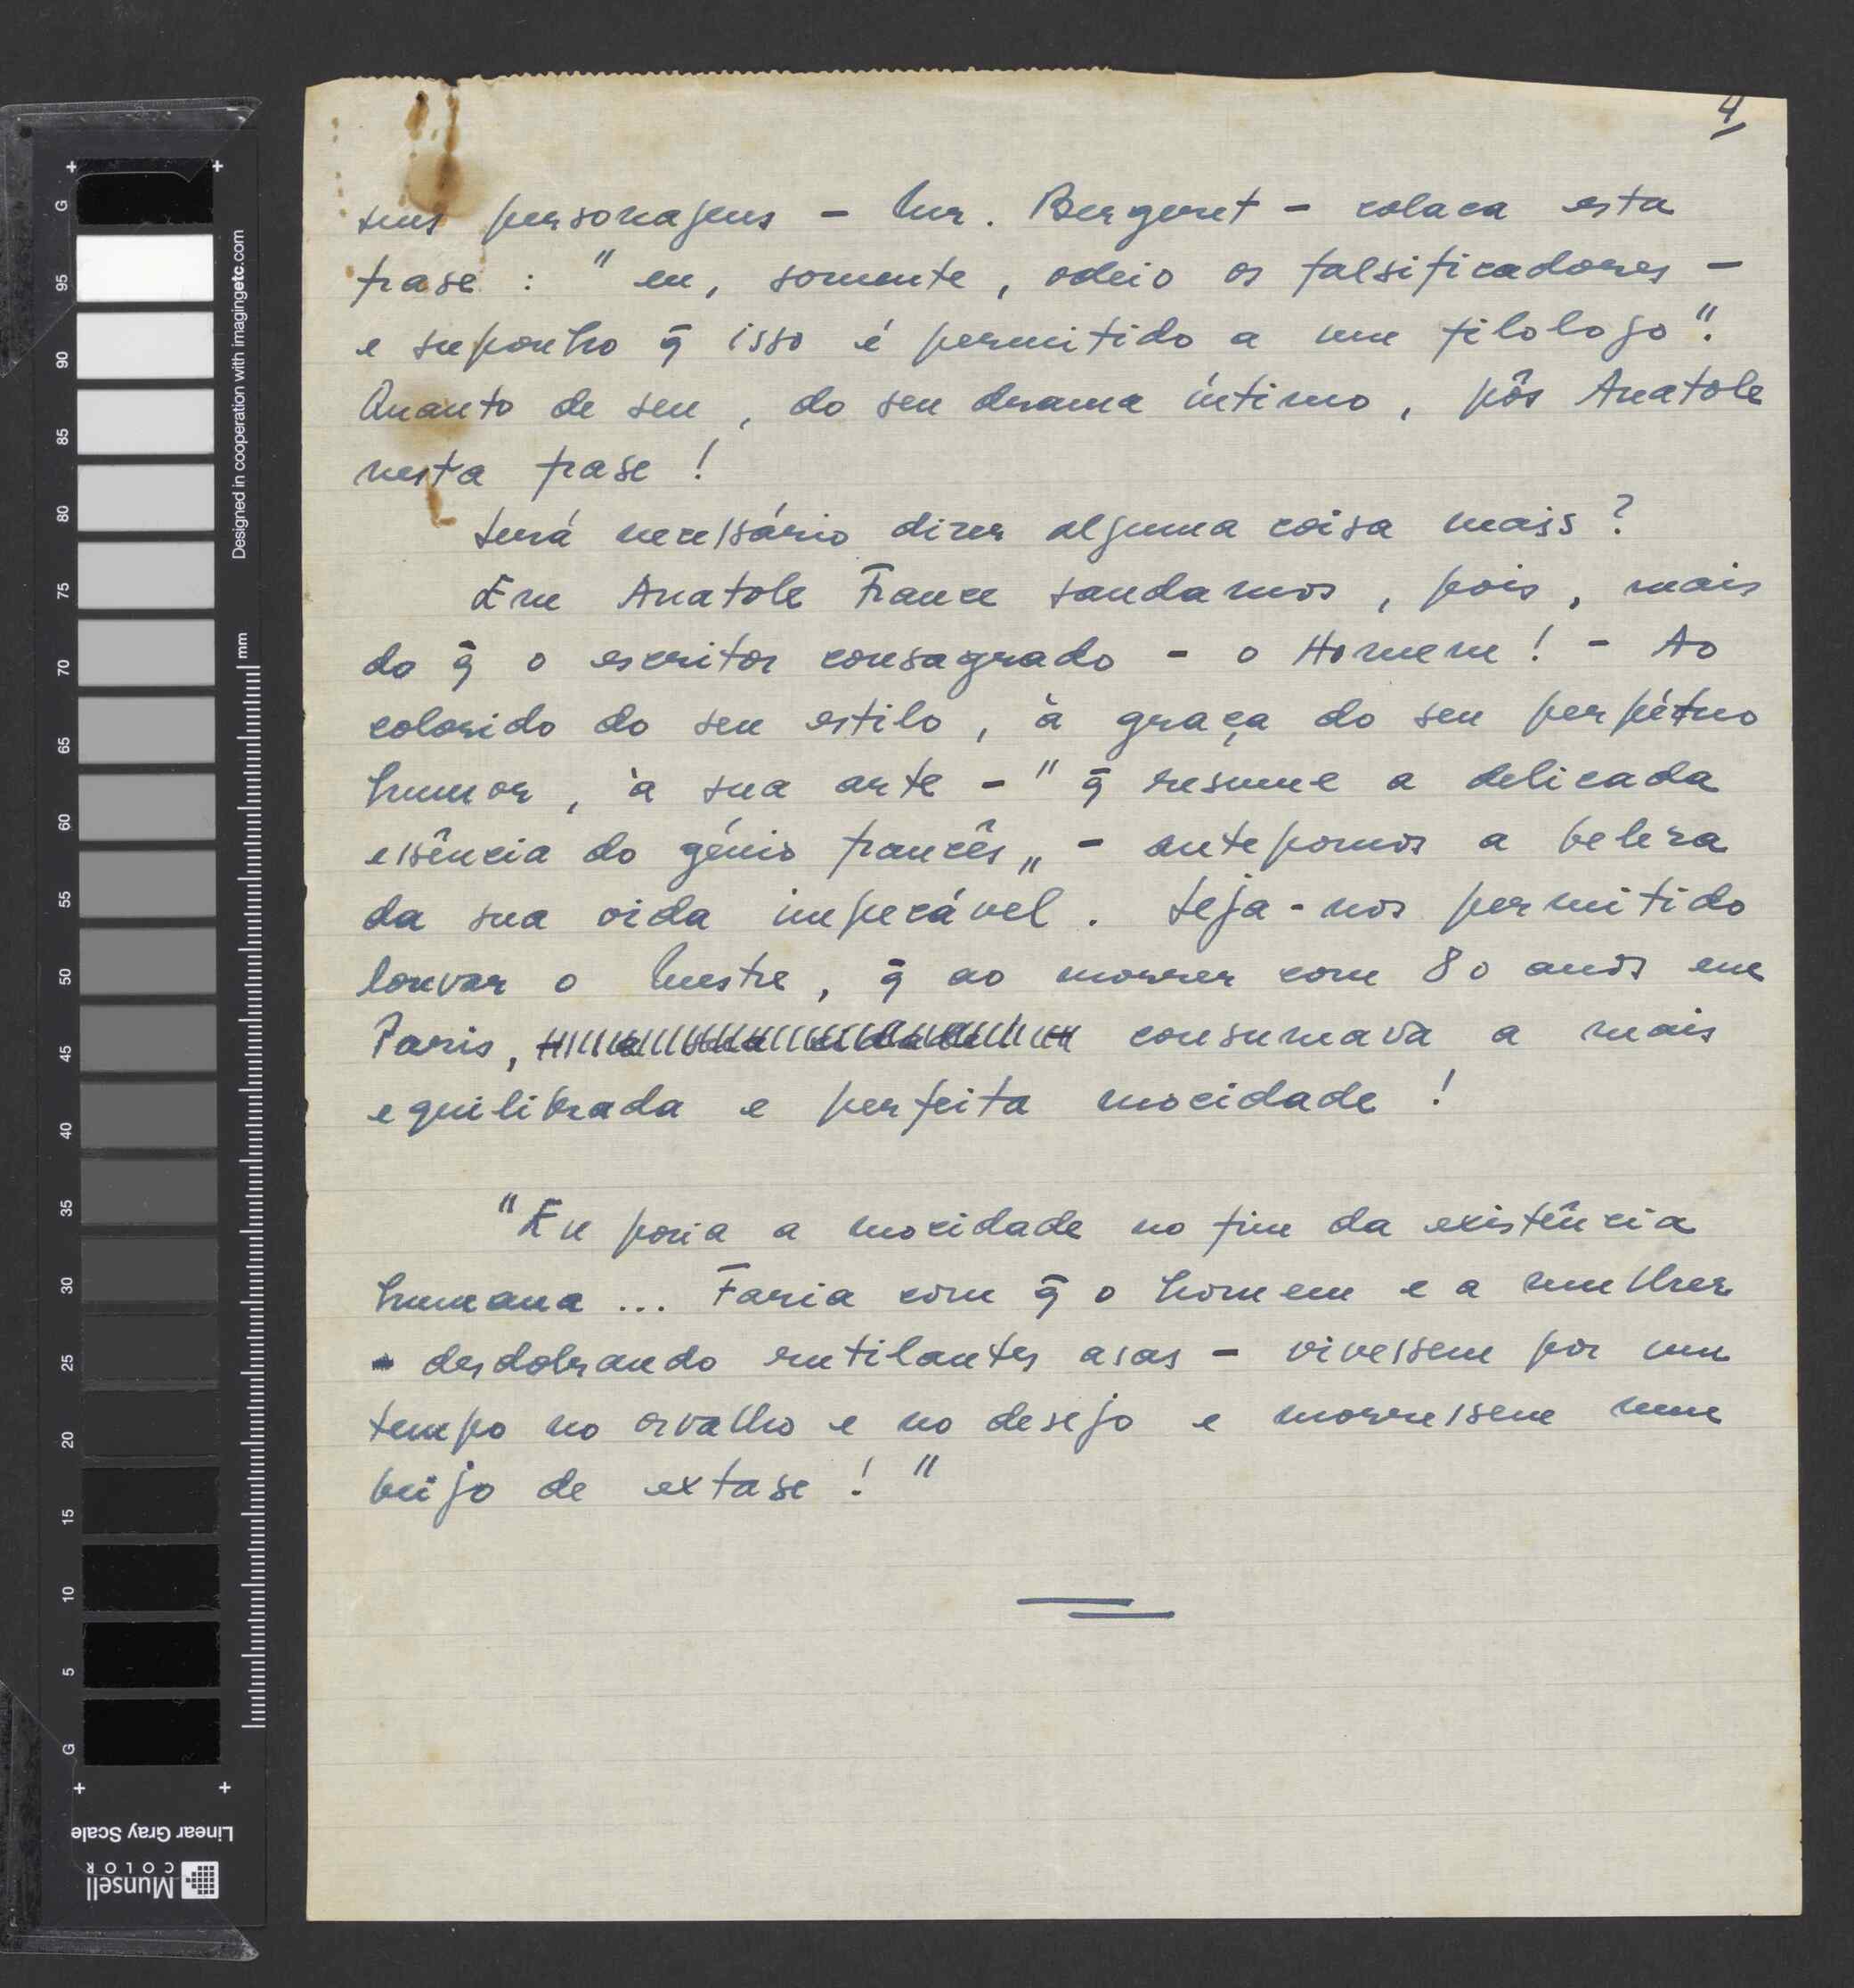 4
seus personagens - Mr. Bergeret - coloca esta
frase : "eu, somente, odeio os falsificadores -
e suponho q̄ isso é permitido a um filologo".
Quanto de seu, do seu drama íntimo, pôs Anatole
nesta frase !
Será necessário dizer alguma coisa mais ?
Em Anatole France saudamos, pois, mais
do q̄ o escritor consagrado - o Homem ! - Ao
colorido do seu estilo, à graça do seu perpétuo
humor, à sua arte - "q̄ resume a delicada
essência do génio francês„ - antepomos a beleza
da sua vida impecável. Seja-nos permitido
louvar o Mestre, q̄ ao morrer com 80 anos em
Paris, consumava a mais
equilibrada e perfeita mocidade !
"Eu poria a mocidade no fim da existência
humana ... Faria com q̄ o homem e a mulher
- desdobrando rutilantes asas - vivessem por um
tempo no orvalho e no desejo e morressem num
beijo de extase ! "
G
95
90
85
80
75
70
65
60
55
50
45
40
35
30
25
20
15
10
5
G
Designed in cooperation with imagingetc.com
mm
Linear Gray Scale
Munsell
COLOR